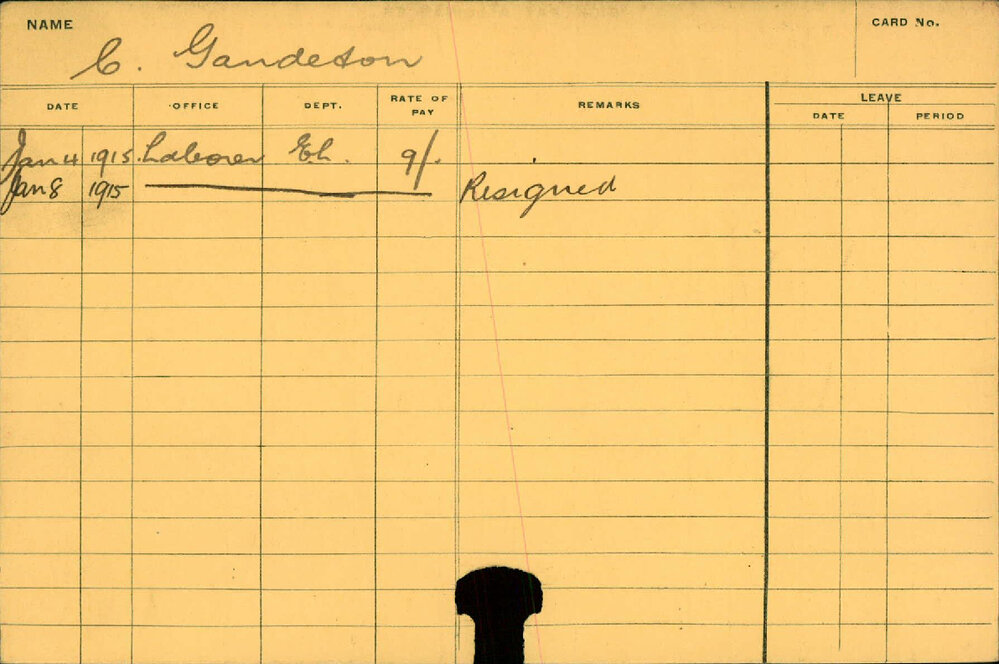 NAME C. Gandeton CARD No.
DATE OFFICE DEPT. RATE OF PAY REMARKS LEAVE DATE PERIOD
Jan 4 1915. Laborer Eh. 9/.
Jan 8 1915 Resigned